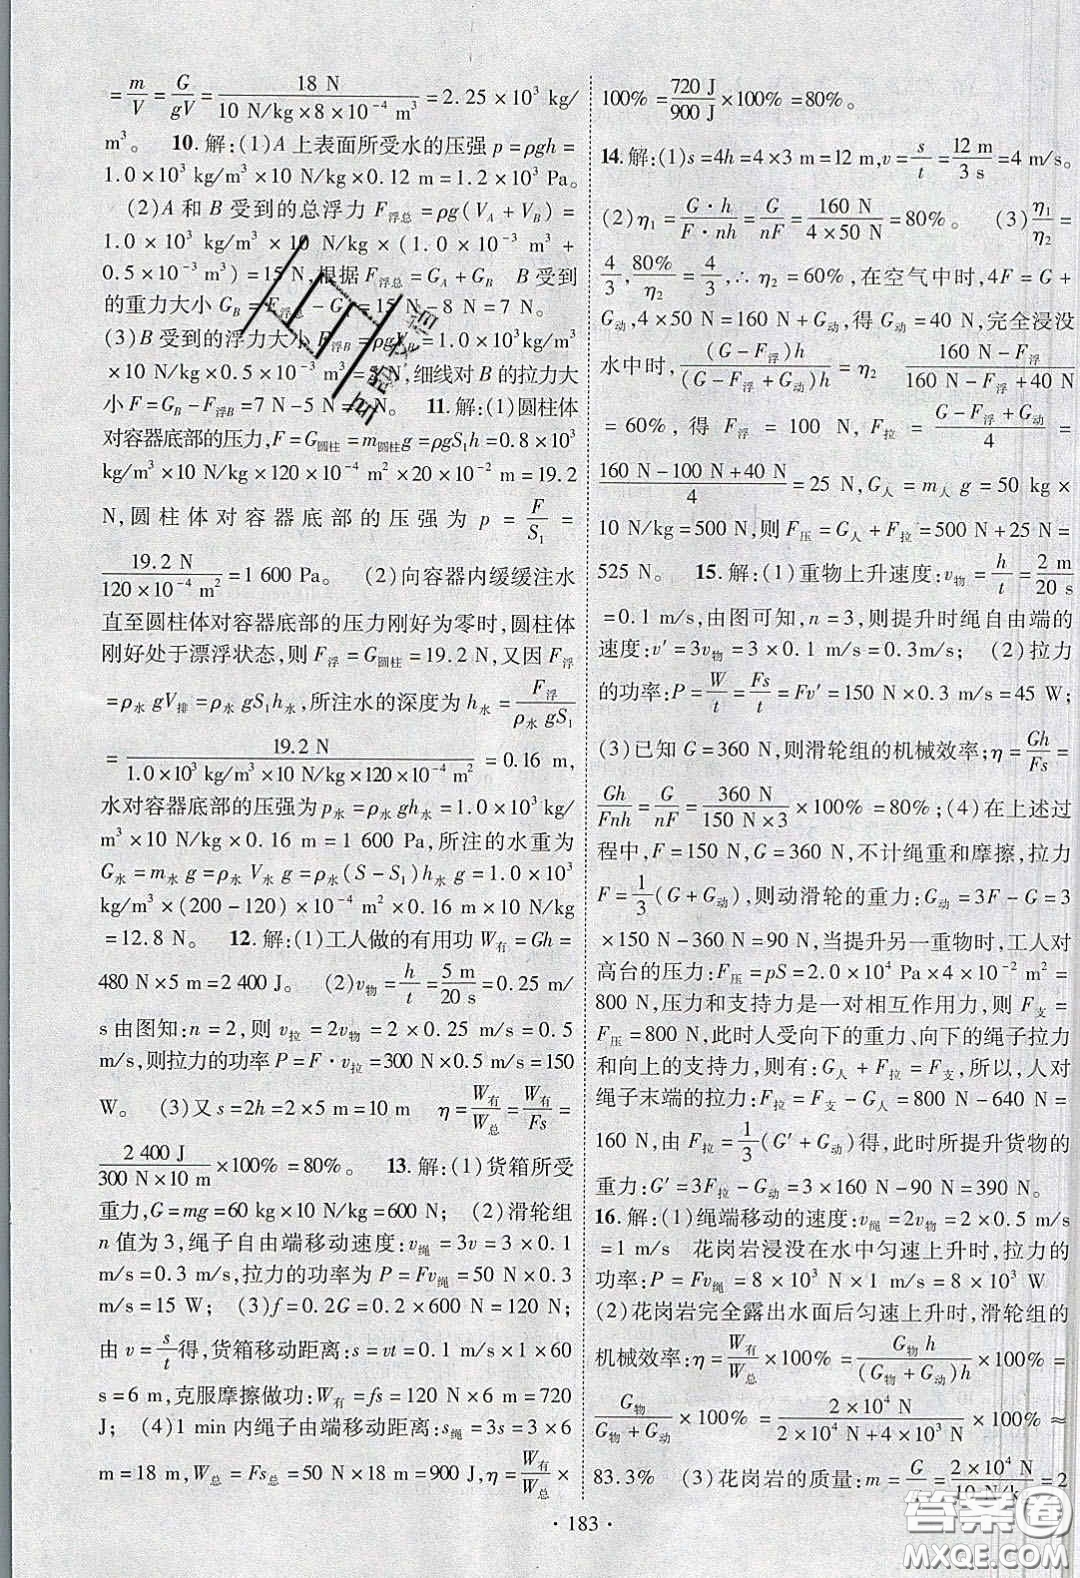 =m/V=G/gV=18 N/(10 N/kg×8×10⁻⁴ m³)=2.25×10³ kg/
m³。 10. 解:(1)A 上表面所受水的压强 p=ρgh=
1.0×10³ kg/m³×10 N/kg×0.12 m=1.2×10³ Pa。
(2)A 和 B 受到的总浮力 F浮总=ρg(V_A+V_B)=
1.0×10³ kg/m³×10 N/kg×(1.0×10⁻³ m³+
0.5×10⁻³ m³)=15 N,根据 F浮总=G_A+G_B B 受到
的重力大小 G_B=F浮总-G_A=15 N-8 N=7 N。
(3)B 受到的浮力大小 F浮B=ρgV_B=1.0×10³ kg/m³
×10 N/kg×0.5×10⁻³ m³=5 N,细线对 B 的拉力大
小 F=G_B-F浮B=7 N-5 N=2 N。 11. 解:(1)圆柱体
对容器底部的压力,F=G圆柱=m圆柱g=ρgS₁h=0.8×10³
kg/m³×10 N/kg×120×10⁻⁴ m²×20×10⁻² m=19.2
N,圆柱体对容器底部的压强为 p=F/S₁=
19.2 N/(120×10⁻⁴ m²)=1 600 Pa。 (2)向容器内缓缓注水
直至圆柱体对容器底部的压力刚好为零时,圆柱体
刚好处于漂浮状态,则 F浮=G圆柱=19.2 N,又因 F浮
=ρ水 gV排=ρ水 gS₁h水,所注水的深度为 h水=F浮/(ρ水 gS₁)
=19.2 N/(1.0×10³ kg/m³×10 N/kg×120×10⁻⁴ m²)=0.16 m,
水对容器底部的压强为 p水=ρ水 gh水=1.0×10³ kg/
m³×10 N/kg×0.16 m=1 600 Pa,所注的水重为
G水=m水 g=ρ水 V水 g=ρ水(S-S₁)h水 g=1.0×10³
kg/m³×(200-120)×10⁻⁴ m²×0.16 m×10 N/kg
=12.8 N。 12. 解:(1)工人做的有用功 W有=Gh=
480 N×5 m=2 400 J。 (2)v物=h/t=5 m/20 s=0.25 m/
s 由图知:n=2,则 v拉=2v物=2×0.25 m/s=0.5
m/s,则拉力的功率 P=F·v拉=300 N×0.5 m/s=150
W。 (3)又 s=2h=2×5 m=10 m η=W有/W总=W有/Fs=
2 400 J/(300 N×10 m)×100%=80%。 13. 解:(1)货箱所受
重力,G=mg=60 kg×10 N/kg=600 N; (2)滑轮组
n 值为 3,绳子自由端移动速度:v绳=3v=3×0.1
m/s=0.3 m/s,拉力的功率为 P=Fv绳=50 N×0.3
m/s=15 W; (3)f=0.2G=0.2×600 N=120 N;
由 v=s/t得,货箱移动距离:s=vt=0.1 m/s×1×60
s=6 m,克服摩擦做功:W有=fs=120 N×6 m=720
J; (4)1 min 内绳子由端移动距离:s绳=3s=3×6
m=18 m,W总=Fs总=50 N×18 m=900 J,η=W有/W总×
100%=720 J/900 J×100%=80%。
14. 解:(1)s=4h=4×3 m=12 m,v=s/t=12 m/3 s=4 m/s。
(2)η₁=G·h/(F·nh)=G/nF=160 N/(4×50 N)=80%。 (3)η₁/η₂=
4/3,80%/η₂=4/3,∴η₂=60%,在空气中时,4F=G+
G动,4×50 N=160 N+G动,得 G动=40 N,完全浸没
水中时,(G-F浮)h/(G-F浮+G动)h=η₂ (160 N-F浮)/(160 N-F浮+40 N)
=60%,得 F浮=100 N,F拉=(G-F浮+G动)/4=
(160 N-100 N+40 N)/4=25 N,G人=m人 g=50 kg×
10 N/kg=500 N,则 F压=G人+F拉=500 N+25 N=
525 N。 15. 解:(1)重物上升速度:v物=h/t=2 m/20 s
=0.1 m/s,由图可知,n=3,则提升时绳自由端的
速度:v′=3v物=3×0.1 m/s=0.3m/s; (2)拉力
的功率:P=W/t=Fs/t=Fv′=150 N×0.3 m/s=45 W;
(3)已知 G=360 N,则滑轮组的机械效率;η=Gh/Fs=
Gh/Fnh=G/nF=360 N/(150 N×3)×100%=80%;(4)在上述过
程中,F=150 N,G=360 N,不计绳重和摩擦,拉力
F=1/3(G+G动),则动滑轮的重力:G动=3F-G=3
×150 N-360 N=90 N,当提升另一重物时,工人对
高台的压力:F压=pS=2.0×10⁴ Pa×4×10⁻² m²=
800 N,压力和支持力是一对相互作用力,则 F支=
F压=800 N,此时人受向下的重力、向下的绳子拉力
和向上的支持力,则有:G人+F拉=F支,所以,人对
绳子末端的拉力:F拉=F支-G人=800 N-640 N=
160 N,由 F拉=1/3(G′+G动)得,此时所提升货物的
重力:G′=3F拉-G动=3×160 N-90 N=390 N。
16. 解:(1)绳端移动的速度:v绳=2v物=2×0.5 m/s
=1 m/s 花岗岩浸没在水中匀速上升时,拉力的
功率:P=Fv绳=8×10³ N×1 m/s=8×10³ W
(2)花岗岩完全露出水面后匀速上升时,滑轮组的
机械效率:η=W有/W总×100%=G物 h/(G物+G动)h×100%=
G物/(G物+G动)×100%=2×10⁴ N/(2×10⁴ N+4×10³ N)×100%≈
83.3% (3)花岗岩的质量:m=G/g=2×10⁴ N/10 N/k=2
·183·
答案圈
MXQE.COM